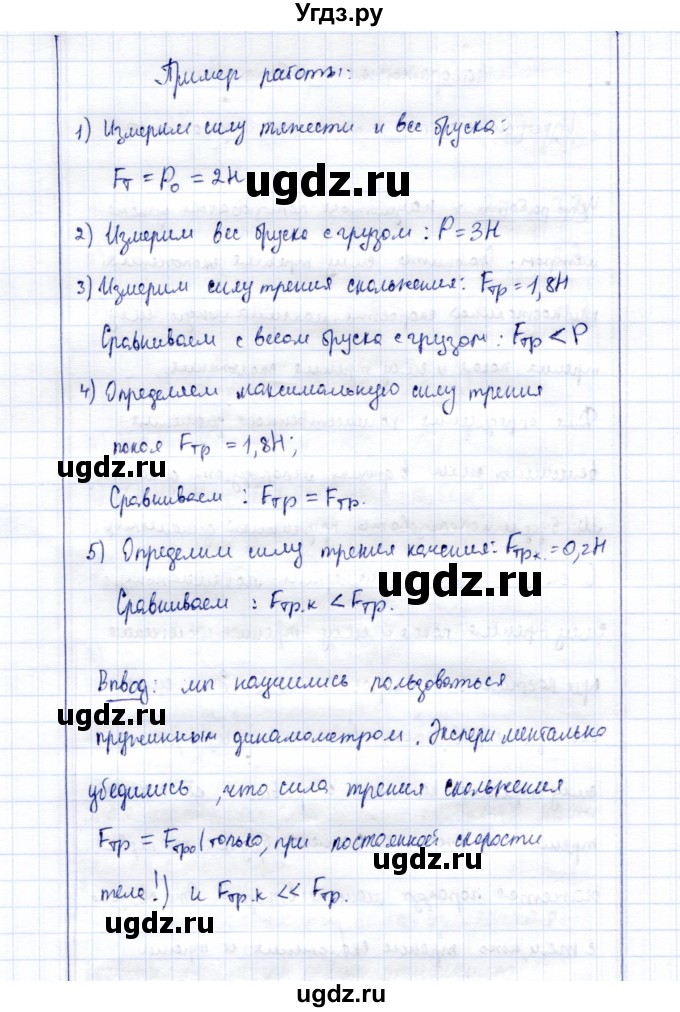 Угдз.ру
Пример работы:
1) Измерим силу тяжести и вес бруска:
Fт = P₀ = 2Н
ugdz.ru
2) Измерим вес бруска с грузом: P=3Н
3) Измерим силу трения скольжения: Fтр=1,8Н
Сравниваем с весом бруска с грузом: Fтр < P
4) Определяем максимальную силу трения
покоя Fтр = 1,8Н;
ugdz.ru
Сравниваем: Fтр = Fтр.
5) Определим силу трения качения: Fтр.к. = 0,2Н
ugdz.ru
Сравниваем: Fтр.к < Fтр.
Вывод: мы научились пользоваться
ugdz.ru
пружинным динамометром. Экспериментально
убедились, что сила трения скольжения
Fтр = Fтро (только, при постоянной скорости
ugdz.ru
тела!) и Fтр.к << Fтр.
ugdz.ru
ugdz.ru